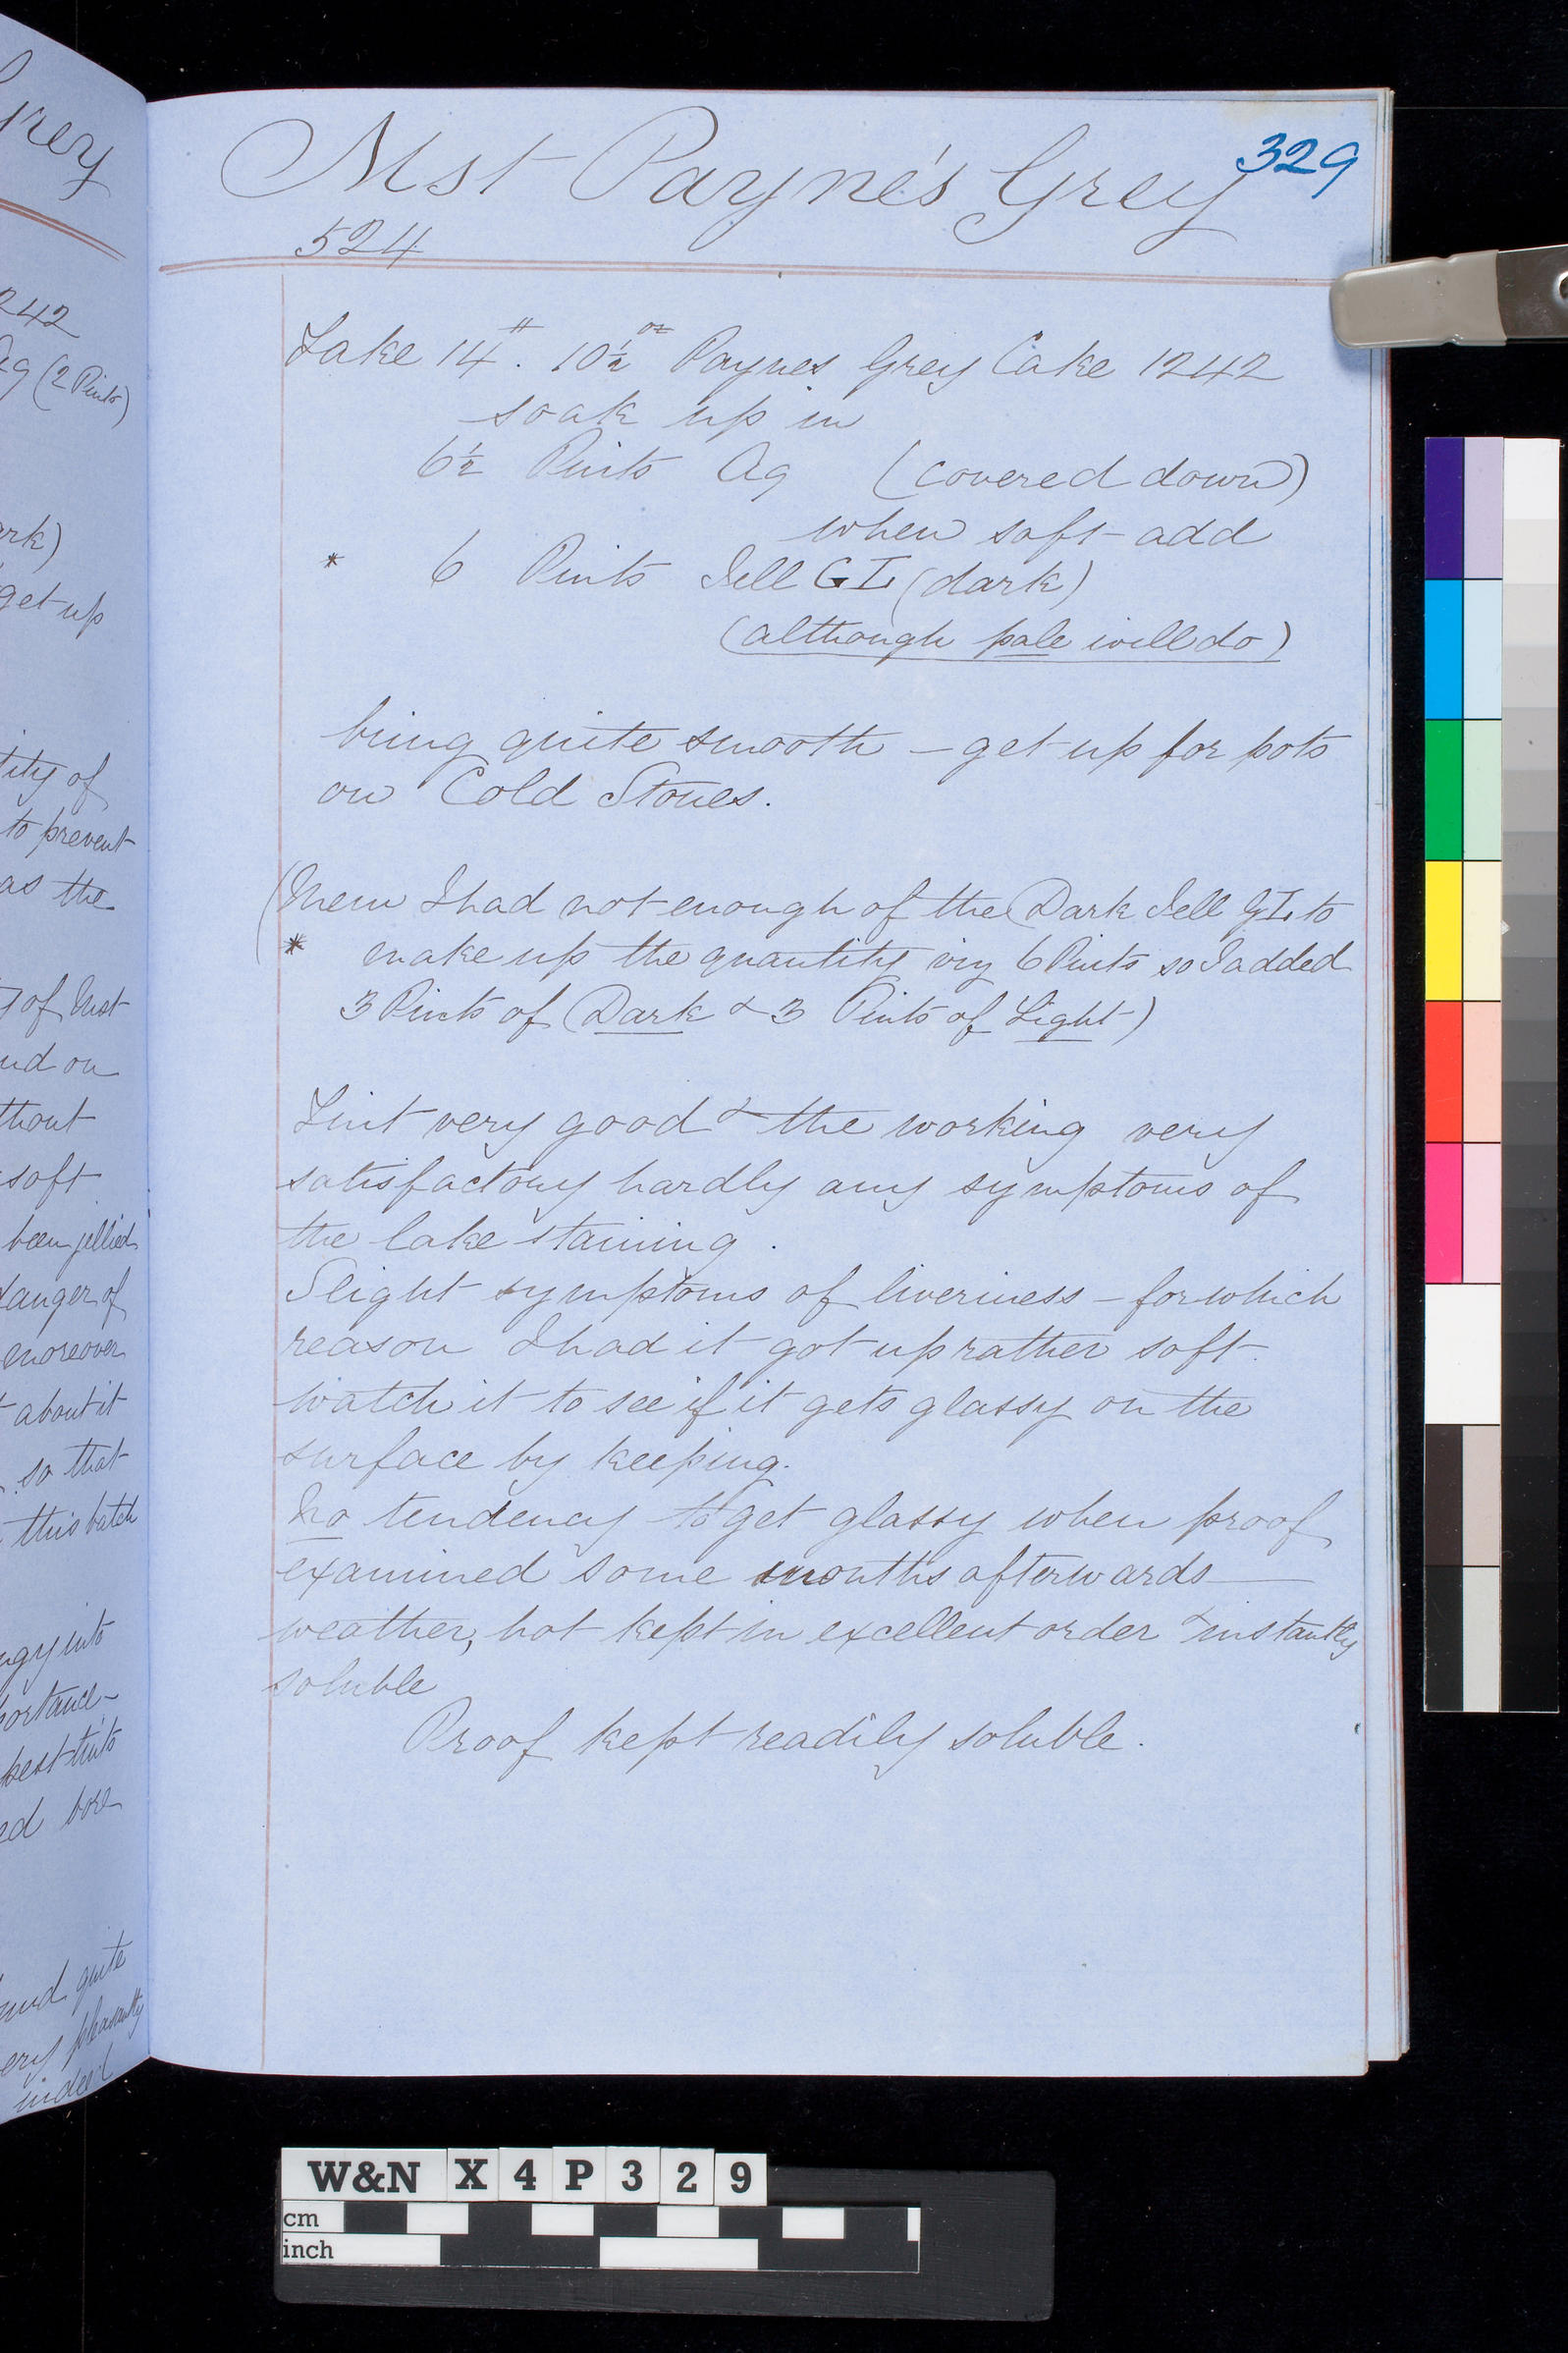 Grey
242
Aq (2 Pints)
ark)
get up
tity of
to prevent
as the
of Mst
nd on
thout
soft
been jellied
danger of
moreover
about it
so that
this batch
into
portance -
kest tints
ed bore
und quite
ery pleasantly
indeed
329
Mst Payne's Grey
524
Take 14#. 10½ oz Paynes Grey Cake 1242
soak up in
6½ Pints Aq (covered down)
when soft add
* 6 Pints Jell GL (dark)
(although pale will do)
being quite smooth - get up for pots
on Cold Stones.
(Mem I had not enough of the Dark Jell GL to
* make up the quantity viz 6 Pints so I added
3 Pints of Dark & 3 Pints of Light)
Tint very good & the working very
satisfactory hardly any symptoms of
the lake staining.
Slight symptoms of liveriness - for which
reason I had it got up rather soft.
Watch it to see if it gets glassy on the
surface by keeping.
No tendency to get glassy when proof
examined some months afterwards
weather, hot kept in excellent order & instantly
soluble
Proof kept readily soluble.
W&N X 4 P 3 2 9
cm
inch